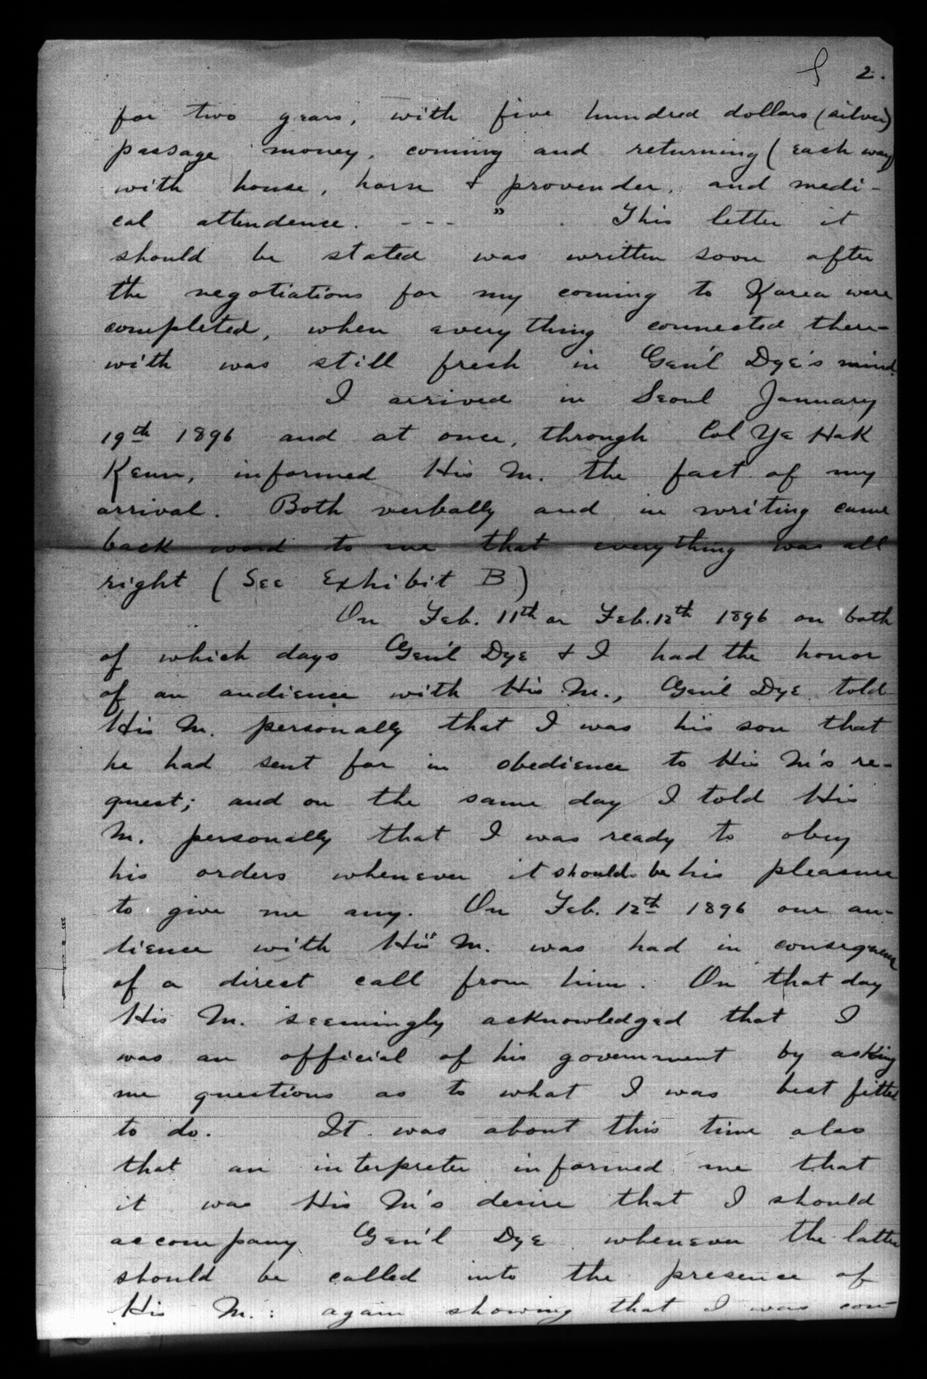 2.
for two years, with five hundred dollars (silver)
passage money, coming and returning (each way)
with house, horse & provender, and medi-
cal attendence. - - - " . This letter it
should be stated was written soon after
the negotiations for my coming to Korea were
completed, when every thing connected there-
with was still fresh in Gen'l Dye's mind.
I arrived in Seoul January
19th 1896 and at once, through Col Ye Hak
Keun, informed His M. the fact of my
arrival. Both verbally and in writing came
back word to me that everything was all
right (See Exhibit B)
On Feb. 11th or Feb. 12th 1896 on both
of which days Gen'l Dye & I had the honor
of an audience with His M., Gen'l Dye told
His M. personally that I was his son that
he had sent for in obedience to His M's re-
quest; and on the same day I told His
M. personally that I was ready to obey
his orders whenever it should be his pleasure
to give me any. On Feb. 12th 1896 our au-
dience with His M. was had in consequence
of a direct call from him. On that day
His M. seemingly acknowledged that I
was an official of his government by asking
me questions as to what I was best fitted
to do. It was about this time also
that an interpreter informed me that
it was His M's desire that I should
accompany Gen'l Dye whenever the latter
should be called into the presence of
His M.: again showing that I was con-